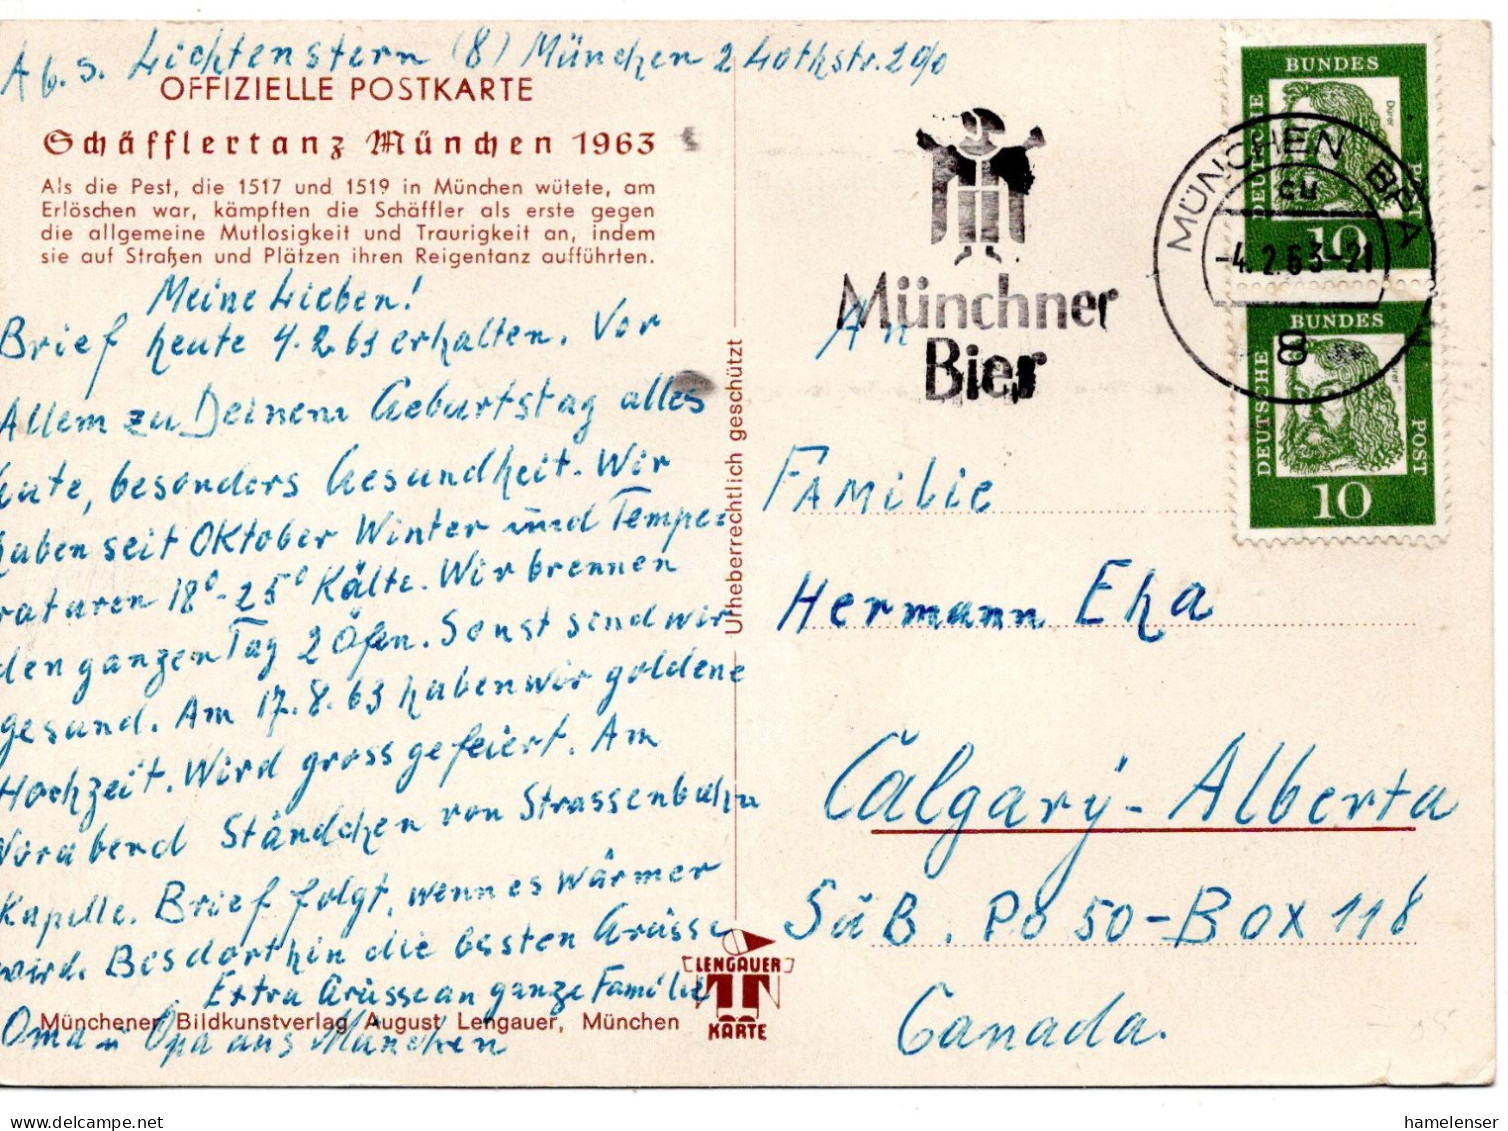 Abs. Lichtenstern (8) München 2 Lothstr. 20/0
OFFIZIELLE POSTKARTE
Schäfflertanz München 1963
Als die Pest, die 1517 und 1519 in München wütete, am
Erlöschen war, kämpften die Schäffler als erste gegen
die allgemeine Mutlosigkeit und Traurigkeit an, indem
sie auf Straßen und Plätzen ihren Reigentanz aufführten.
Meine Lieben!
Brief heute 4.2.63 erhalten. Vor
Allem zu Deinem Geburtstag alles
Gute, besonders Gesundheit. Wir
haben seit Oktober Winter und Tempe-
raturen 18° - 25° Kälte. Wir brennen
den ganzen Tag 2 Öfen. Sonst sind wir
gesund. Am 17.8.63 haben wir goldene
Hochzeit. Wird gross gefeiert. Am
Vorabend Ständchen von Strassenbahn
Kapelle. Brief folgt, wenn es wärmer
wird. Bis dorthin die besten Grüsse
Extra Grüsse an ganze Familie
Oma u Opa aus München
Münchener Bildkunstverlag August Lengauer, München
Urheberrechtlich geschützt
LENGAUER
KARTE
Münchner
Bier
MÜNCHEN BPA
cu
-4.2.63-21
8
DEUTSCHE
BUNDES
POST
Dürer
10
DEUTSCHE
BUNDES
POST
10
An
Familie
Hermann Eha
Calgary - Alberta
Süd. Po 50 - Box 118
Canada.
hamelenser